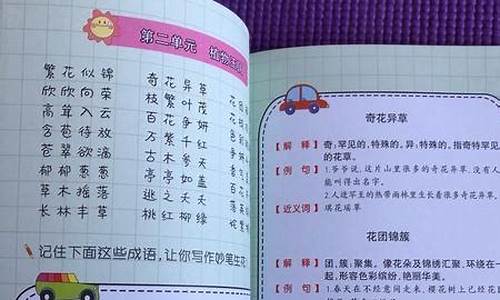 第二单元 植物王国
繁花似锦 奇花异草 花团
欣欣向荣 枝繁叶茂
高耸入云 百花争妍 色
含苞待放 万紫千红
苍翠欲滴 古木参天
郁郁葱葱 亭亭如盖 百花
草木摇落 逃之夭夭 落英
长林丰草 桃红柳绿
记住下面这些成语,让你写作妙笔生花
奇花异草
【解 释】 奇:罕见的,特殊的。异:特殊的。指奇特罕见
的花草。
【例 句】 1.爷爷说,这片山里很多的奇花异草,没有人
能叫得出名字。
2.人迹罕至的热带雨林里生长着很多奇花异草。
【近义词】 琪花瑶草
花团锦簇
【解 释】 团,簇:聚集。像花朵及锦绣汇聚,环绕在一
起,形容色彩缤纷,艳丽华美。
【例 句】 1.春天在不经意间走来,樱花树上已经花